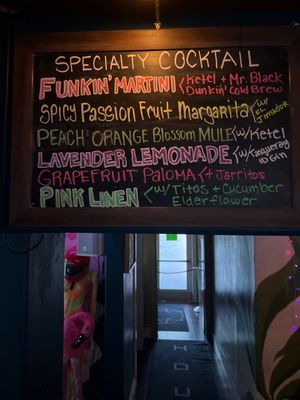 SPECIALTY COCKTAIL
FUNKIN' MARTINI < Ketel + Mr. Black
Dunkin' Cold Brew
SPICY Passion Fruit Margarita < w/ EL JIMADOR
PEACH ORANGE Blossom MULE < w/ Ketel
LAVENDER LEMONADE < w/ Tanqueray
10 Gin
GRAPEFRUIT PALOMA < + Jarritos
PINK LINEN < w/ Titos + Cucumber
Elderflower
HOU